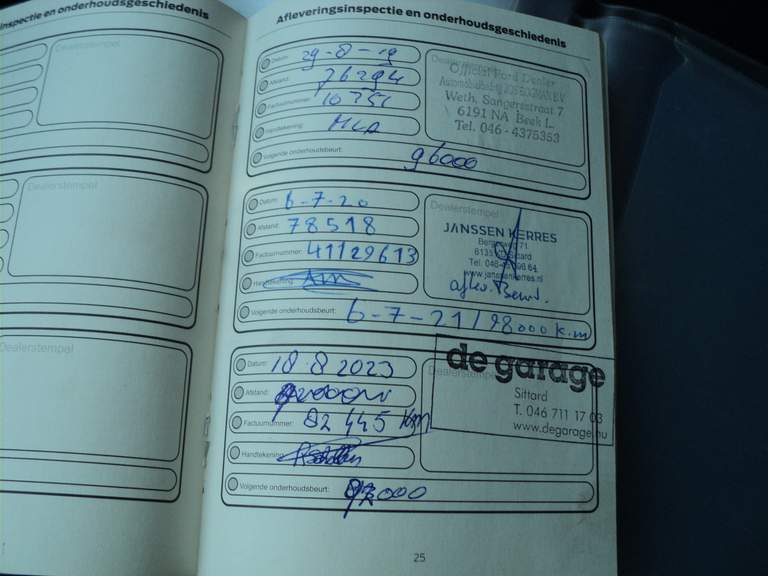 inspectie en onderhoudsgeschiedenis
Dealerstempel
Dealerstempel
Dealerstempel
Afleveringsinspectie en onderhoudsgeschiedenis
Datum: 29-8-19
Afstand: 76294
Factuurnummer: 10751
Handtekening:
Volgende onderhoudsbeurt: 96000
Official Ford Dealer
Weth. Sangersstraat 7
6191 NA Beek L.
Tel. 046 - 4375353
Datum: 6-7-20
Afstand: 78518
Factuurnummer: 41129613
Handtekening:
Volgende onderhoudsbeurt: 6-7-21/98000 k.m
Dealerstempel
JANSSEN KERRES
www.janssenkerres.nl
Datum: 18 8 2023
Afstand:
Factuurnummer: 82 445 KM
Handtekening:
Volgende onderhoudsbeurt:
de garage
Sittard
T. 046 711 17 03
www.degarage.nu
25